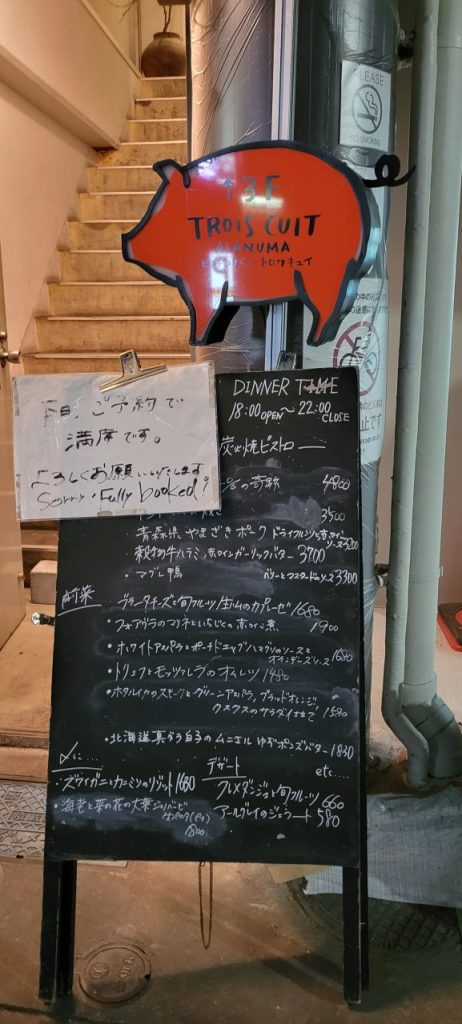 PLEASE
NO SMOKING
3F
TROIS CUIT
ASANUMA
トロワキュイ
DINNER TIME
18:00 OPEN〜22:00 CLOSE
本日、ご予約で
満席です。
よろしくお願いいたします
Sorry. Fully booked!
炭火焼ビストロ
の奇跡 4900
3500
・青森県やまざきポーク
・穀物牛ハラミ 赤ワインガーリックバター 3700
・マグレ鴨 ベリーとマスタードのソース 3300
前菜
ブラータチーズと旬フルーツ 生ハムのカプレーゼ 1680
・フォアグラのソテといちじくの赤ワイン煮 1900
・ホワイトアスパラとポーチドエッグ ハマグリのソースと 1680
・トリュフとモッツァレラのオムレツ 1480
・ホタルイカのスモークとグリーンアスパラ、ブラッドオレンジ、
クスクスのサラダ仕立て 1580
・北海道真ダラ白子のムニエル ゆずポンズバター 1830
etc....
〆に…
・ズワイガニとカニミソのリゾット 1680
・海老と菜の花の大葉ジェノベーゼ
1800
デザート
クレメダンジュと旬フルーツ 660
アールグレイのジェラート 580